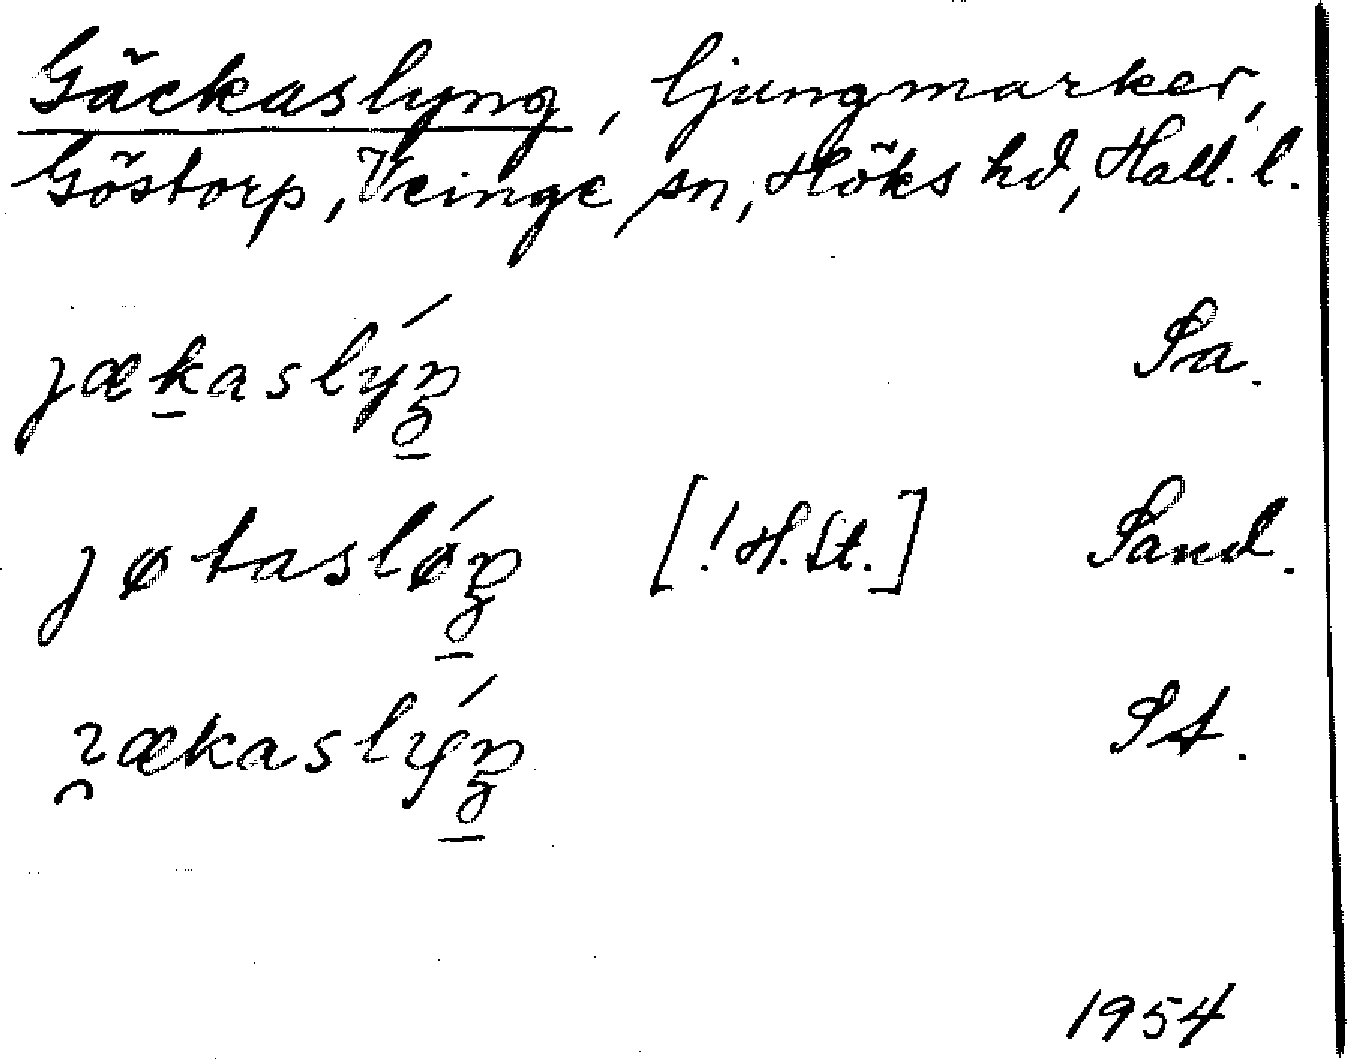 Gäckaslyng, ljungmarker,
Göstorp, Veinge sn, Höks hd, Hall. l.
jækaslýŋ Sa.
jøtasló̷ŋ [! H. St.] Sand.
ɿækaslýŋ St.
1954